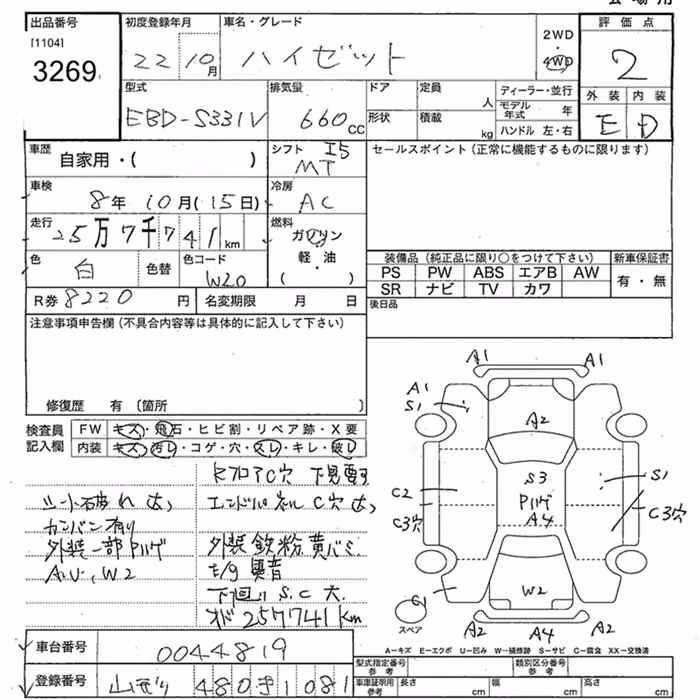 出品番号
[1104]
3269
初度登録年月
22 10月
車名・グレード
ハイゼット
2WD
4WD
評価点
2
外装 内装
E D
型式
EBD-S331V
排気量
660cc
ドア
定員
人
形状
積載
kg
ディーラー・並行
モデル年式 年
ハンドル 左・右
車歴
自家用・( )
シフト I5
MT
セールスポイント(正常に機能するものに限ります)
車検
8年 10月(15日)
冷房
AC
走行
25万7千741km
燃料
ガソリン
軽・油
( ・ )
色
白
色替
色コード
W20
装備品(純正品に限り○をつけて下さい)
新車保証書
PS PW ABS エアB AW
SR ナビ TV カワ
有・無
R券 8220円
名変期限 月 日
後日品
注意事項申告欄(不具合内容等は具体的に記入して下さい)
修復歴 有 〔箇所
検査員記入欄
FW キズ・飛石・ヒビ割・リペア跡・X要
内装 キズ・汚レ・コゲ・穴・スレ・キレ・破レ
C穴 下見要す
シート破れ大
エンドパネル C穴 大
カンバン有り
外装一部Pハゲ
外装 鉄粉 黄バミ
A.U.W2
E/g 異音
下回り S.C 大
オド 257741km
A1 A1
A1
S1
A2
S3
Pハゲ
A4
S1
C2
C3穴
C3穴
W2
C1
A2 A4 A2
スペア
A-キズ E-エクボ U-凹み W-補修跡 S-サビ C-腐食 XX-交換済
車台番号
0044819
登録番号
480 き 1081
型式指定番号
参考
類別区分番号
参考
車庫証明用
参考
長さ cm
幅 cm
高さ cm